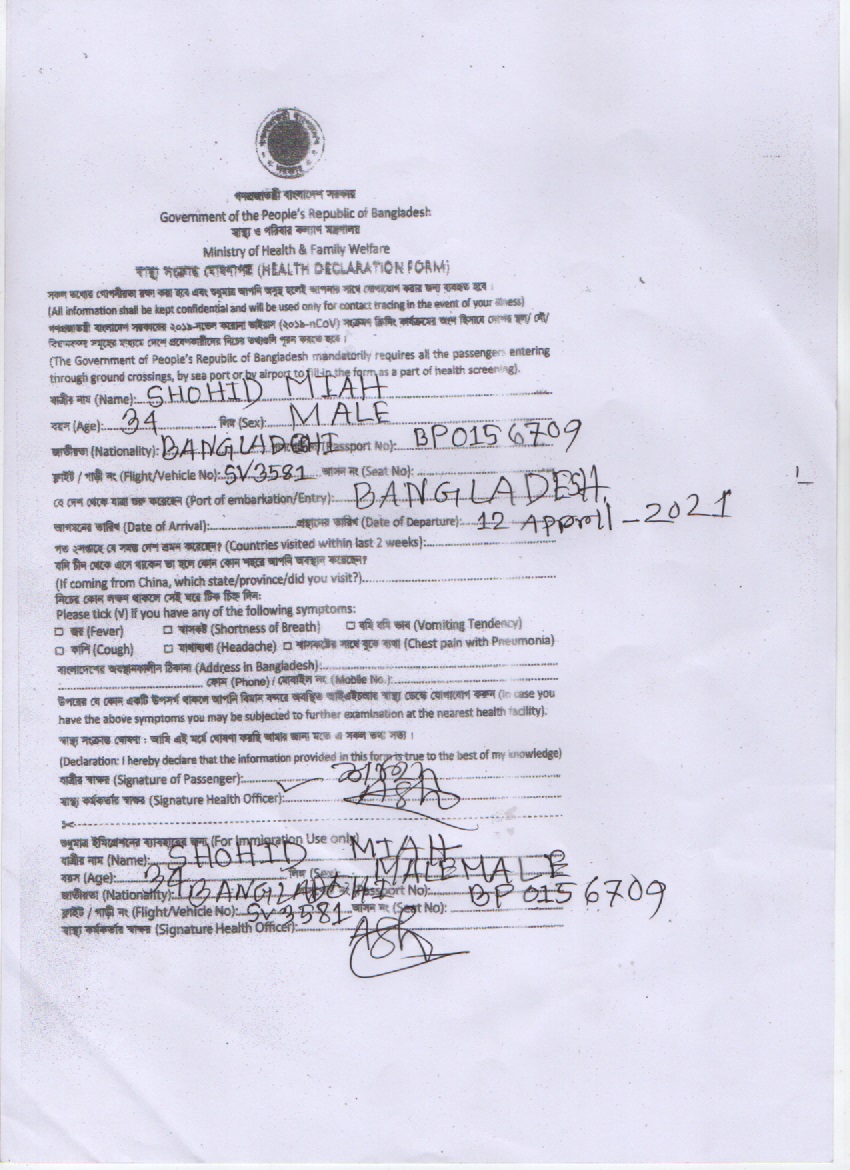 গণপ্রজাতন্ত্রী বাংলাদেশ সরকার
Government of the People's Republic of Bangladesh
স্বাস্থ্য ও পরিবার কল্যাণ মন্ত্রণালয়
Ministry of Health & Family Welfare
স্বাস্থ্য সংক্রান্ত ঘোষণাপত্র (HEALTH DECLARATION FORM)
সকল তথ্যের গোপনীয়তা রক্ষা করা হবে এবং শুধুমাত্র আপনি অসুস্থ হলেই আপনার সাথে যোগাযোগ করার জন্য ব্যবহৃত হবে।
(All information shall be kept confidential and will be used only for contact tracing in the event of your illness)
গণপ্রজাতন্ত্রী বাংলাদেশ সরকারের ২০১৯-নভেল করোনা ভাইরাস (২০১৯-nCoV) সংক্রমণ স্ক্রিনিং কার্যক্রমের অংশ হিসাবে দেশের স্থল/ নৌ/
(The Government of People's Republic of Bangladesh mandatorily requires all the passengers entering
through ground crossings, by sea port or by airport to fill in the form as a part of health screening).
যাত্রীর নাম (Name): SHOHID MIAH
বয়স (Age): 34 লিঙ্গ (Sex): MALE
জাতীয়তা (Nationality): BANGLADCHI (Passport No): BP0156709
ফ্লাইট / গাড়ী নং (Flight/Vehicle No): SV3581 আসন নং (Seat No):
যে দেশ থেকে যাত্রা শুরু করেছেন (Port of embarkation/Entry): BANGLADESH
আগমনের তারিখ (Date of Arrival): প্রস্থানের তারিখ (Date of Departure): 12 Approll-2021
গত ২ সপ্তাহে যে সমস্ত দেশ ভ্রমন করেছেন? (Countries visited within last 2 weeks):
যদি চীন থেকে এসে থাকেন তা হলে কোন কোন শহরে আপনি অবস্থান করেছেন?
(If coming from China, which state/province/did you visit?)
নিচের কোন লক্ষণ থাকলে সেই ঘরে টিক চিহ্ন দিন:
Please tick (V) if you have any of the following symptoms:
জ্বর (Fever) শ্বাসকষ্ট (Shortness of Breath) বমি বমি ভাব (Vomiting Tendency)
কাশি (Cough) মাথাব্যথা (Headache) শ্বাসকষ্টের সাথে বুকে ব্যথা (Chest pain with Pneumonia)
বাংলাদেশের অবস্থানকালীন ঠিকানা (Address in Bangladesh):
ফোন (Phone) / মোবাইল নং (Mobile No.):
(In case you
have the above symptoms you may be subjected to further examination at the nearest health facility).
স্বাস্থ্য সংক্রান্ত ঘোষণা : আমি এই মর্মে ঘোষণা করছি আমার জানা মতে এ সকল তথ্য সত্য।
(Declaration: I hereby declare that the information provided in this form is true to the best of my knowledge)
যাত্রীর স্বাক্ষর (Signature of Passenger):
স্বাস্থ্য কর্মকর্তার স্বাক্ষর (Signature Health Officer):
শুধুমাত্র ইমিগ্রেশনের ব্যবহারের জন্য (For Immigration Use only)
যাত্রীর নাম (Name): SHOHID MIAH
বয়স (Age): 34 লিঙ্গ (Sex): MALEMALE
জাতীয়তা (Nationality): BANGLADCHI (Passport No): BP0156709
ফ্লাইট / গাড়ী নং (Flight/Vehicle No): SV3581 আসন নং (Seat No):
স্বাস্থ্য কর্মকর্তার স্বাক্ষর (Signature Health Officer):